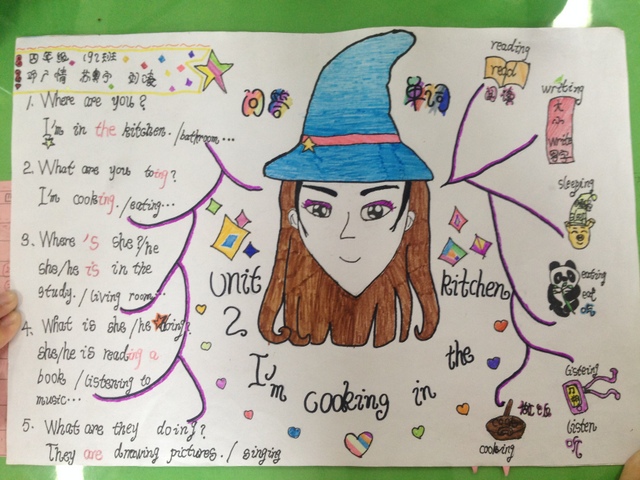 四年级 192班
问答
单词
1. Where are you?
I'm in the kitchen. /bathroom...
2. What are you toing?
I'm cooking. /eating...
3. Where 's she?/he
she/he is in the
study. / living room...
4. What is she /he doing?
she/he is reading a
book / listening to
music...
5. What are they doing?
They are drawing pictures. / singing
unit
2
I'm cooking in the
kitchen
reading
read
阅读
writing
write
写字
sleeping
eating
eat
吃
listeing
listen
听
做饭
cooking